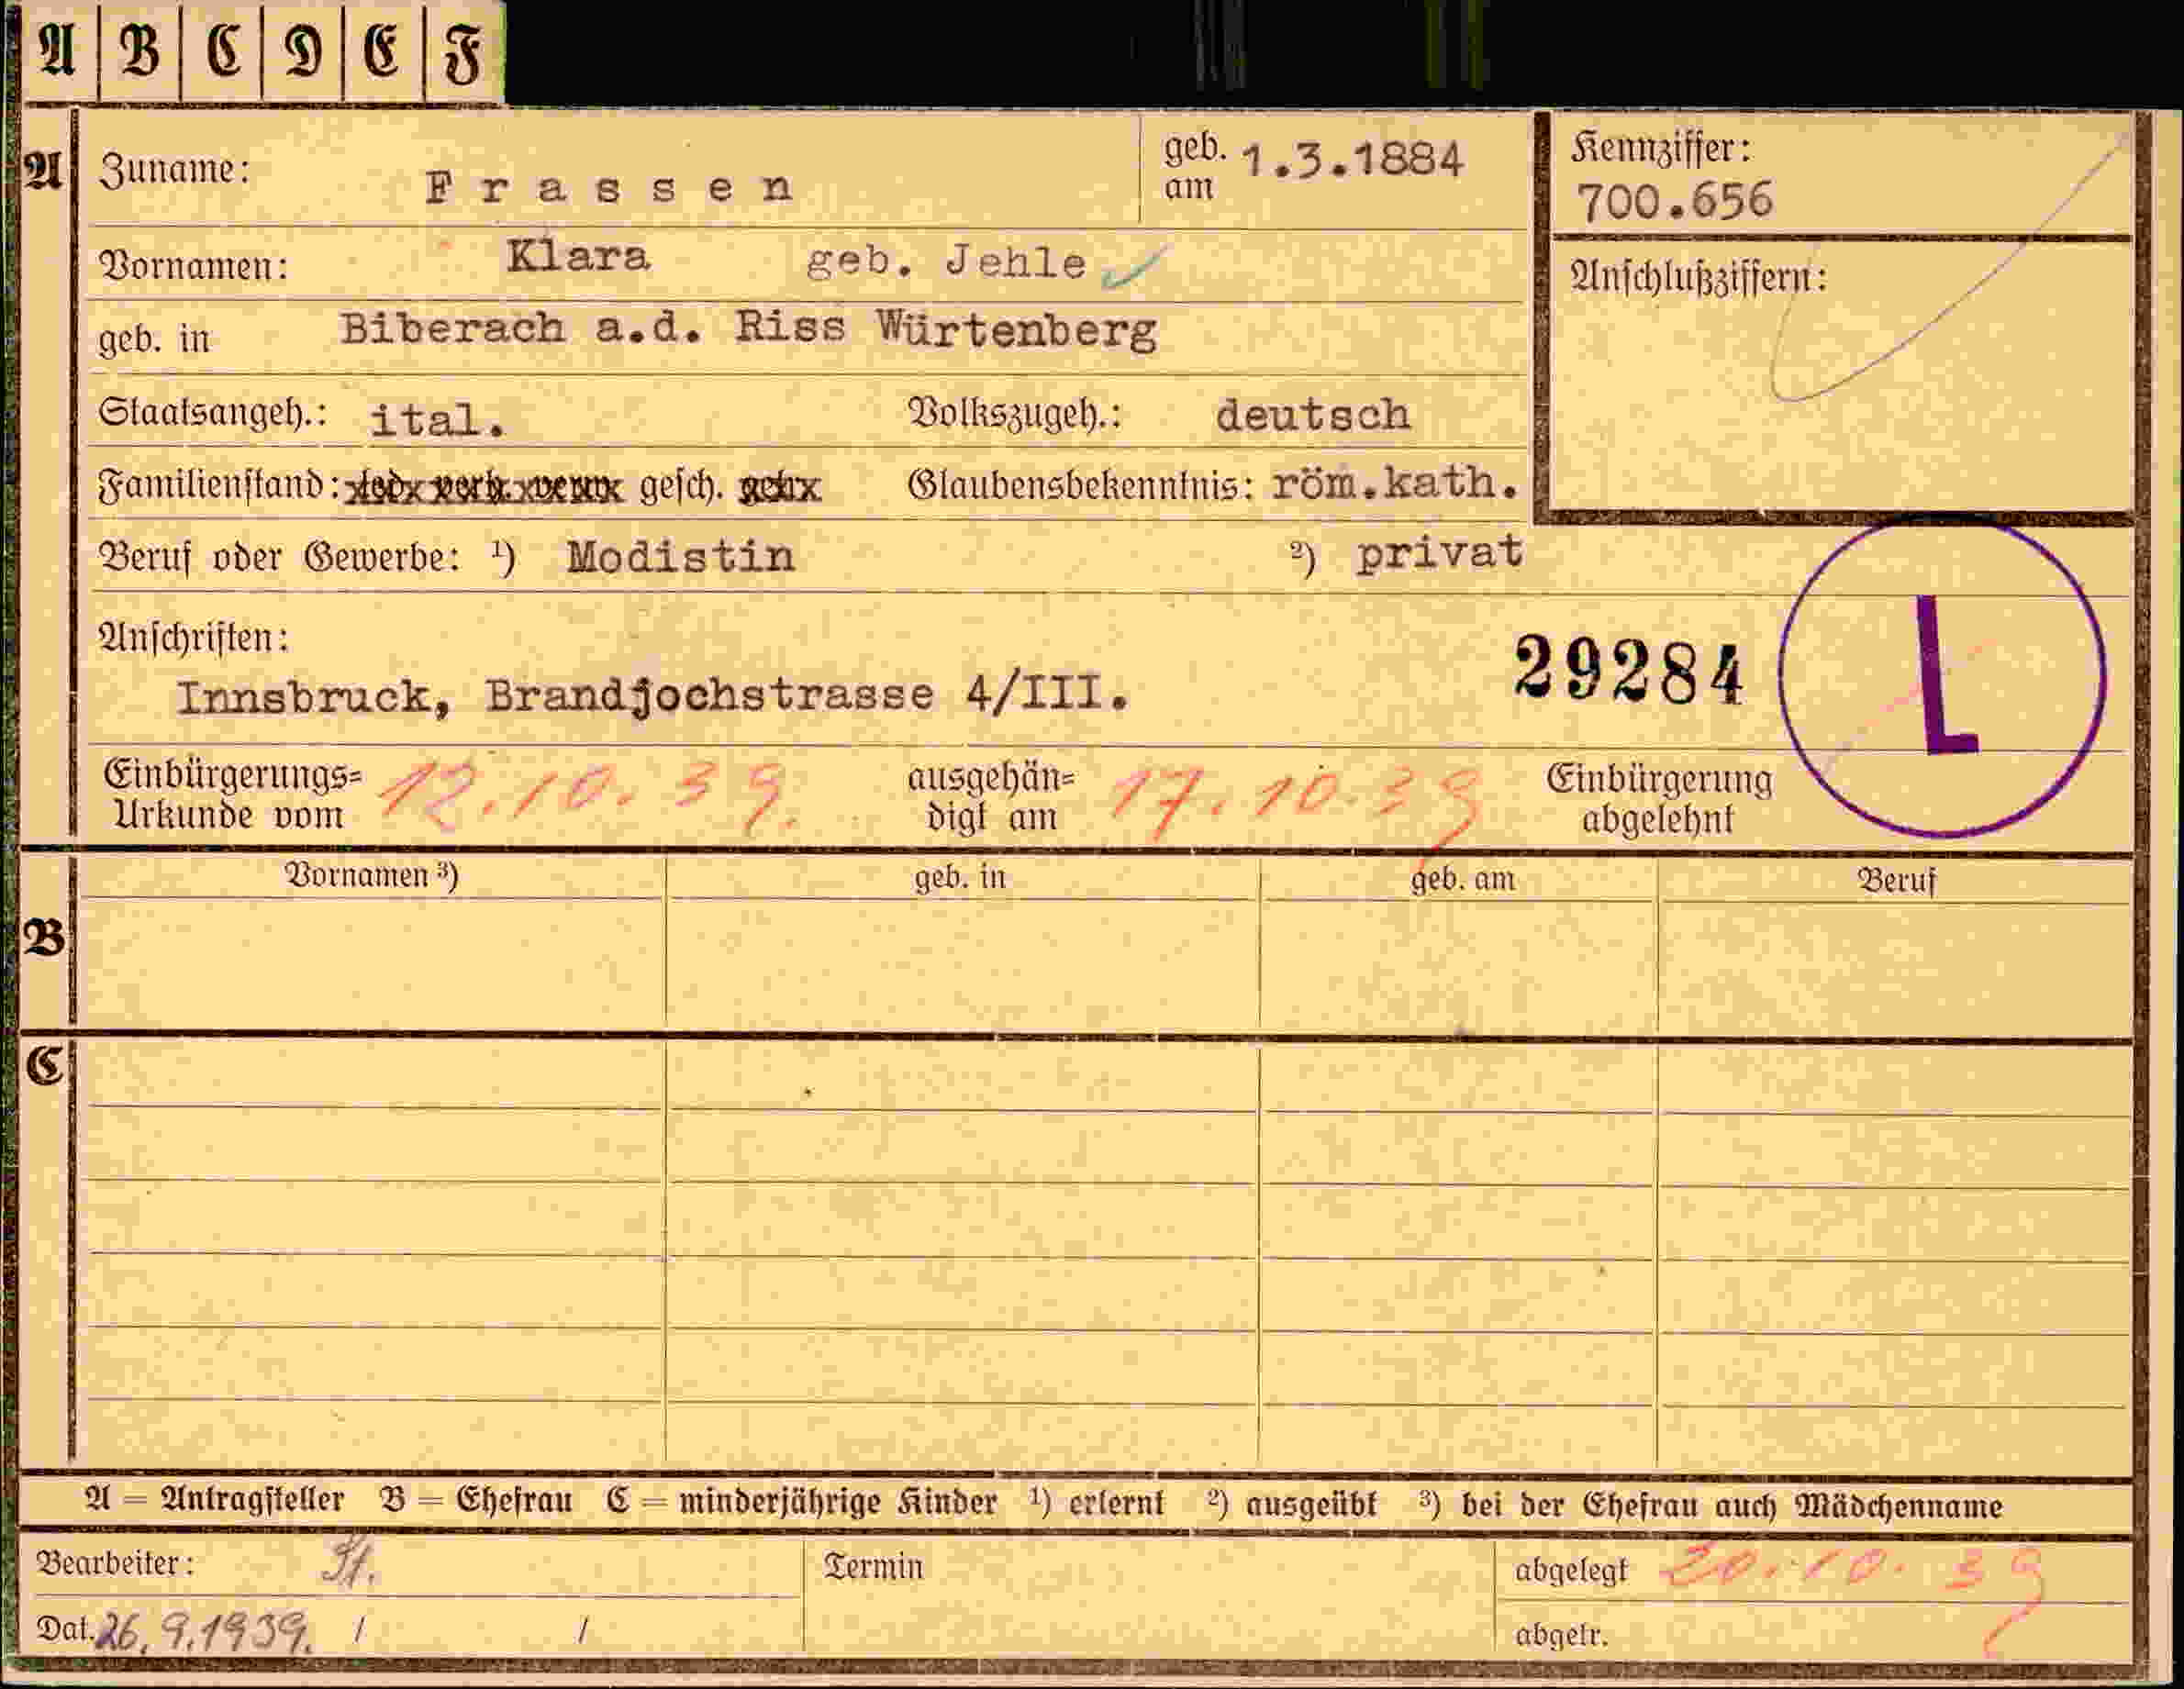 A B C D E F
A Zuname: Frassen geb. am 1.3.1884
Kennziffer:
700.656
Vornamen: Klara geb. Jehle
Anschlußziffern:
geb. in Biberach a.d. Riss Würtenberg
Staatsangeh.: ital. Volkszugeh.: deutsch
Familienstand: led. verh. verw. gesch. getr. Glaubensbekenntnis: röm.kath.
Beruf oder Gewerbe: ¹) Modistin ²) privat
Anschriften:
29284 L
Innsbruck, Brandjochstrasse 4/III.
Einbürgerungs=
Urkunde vom 12.10.39.
ausgehän=
digt am 17.10.39
Einbürgerung
abgelehnt
Vornamen ³) geb. in geb. am Beruf
B
C
A = Antragsteller B = Ehefrau C = minderjährige Kinder ¹) erlernt ²) ausgeübt ³) bei der Ehefrau auch Mädchenname
Bearbeiter: Termin abgelegt 20.10.39
Dat. 26.9.1939. / / abgetr.